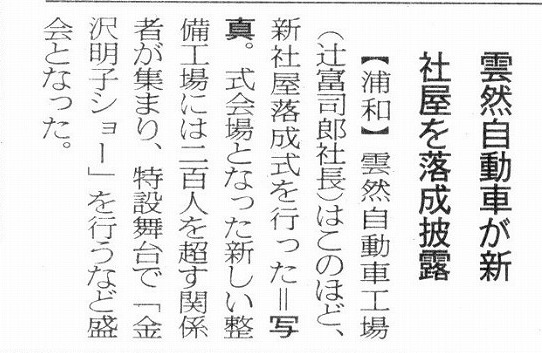 雲然自動車が新
社屋を落成披露
【浦和】雲然自動車工場
（辻富司郎社長）はこのほど、
新社屋落成式を行った＝写
真。式会場となった新しい整
備工場には二百人を超す関係
者が集まり、特設舞台で「金
沢明子ショー」を行うなど盛
会となった。